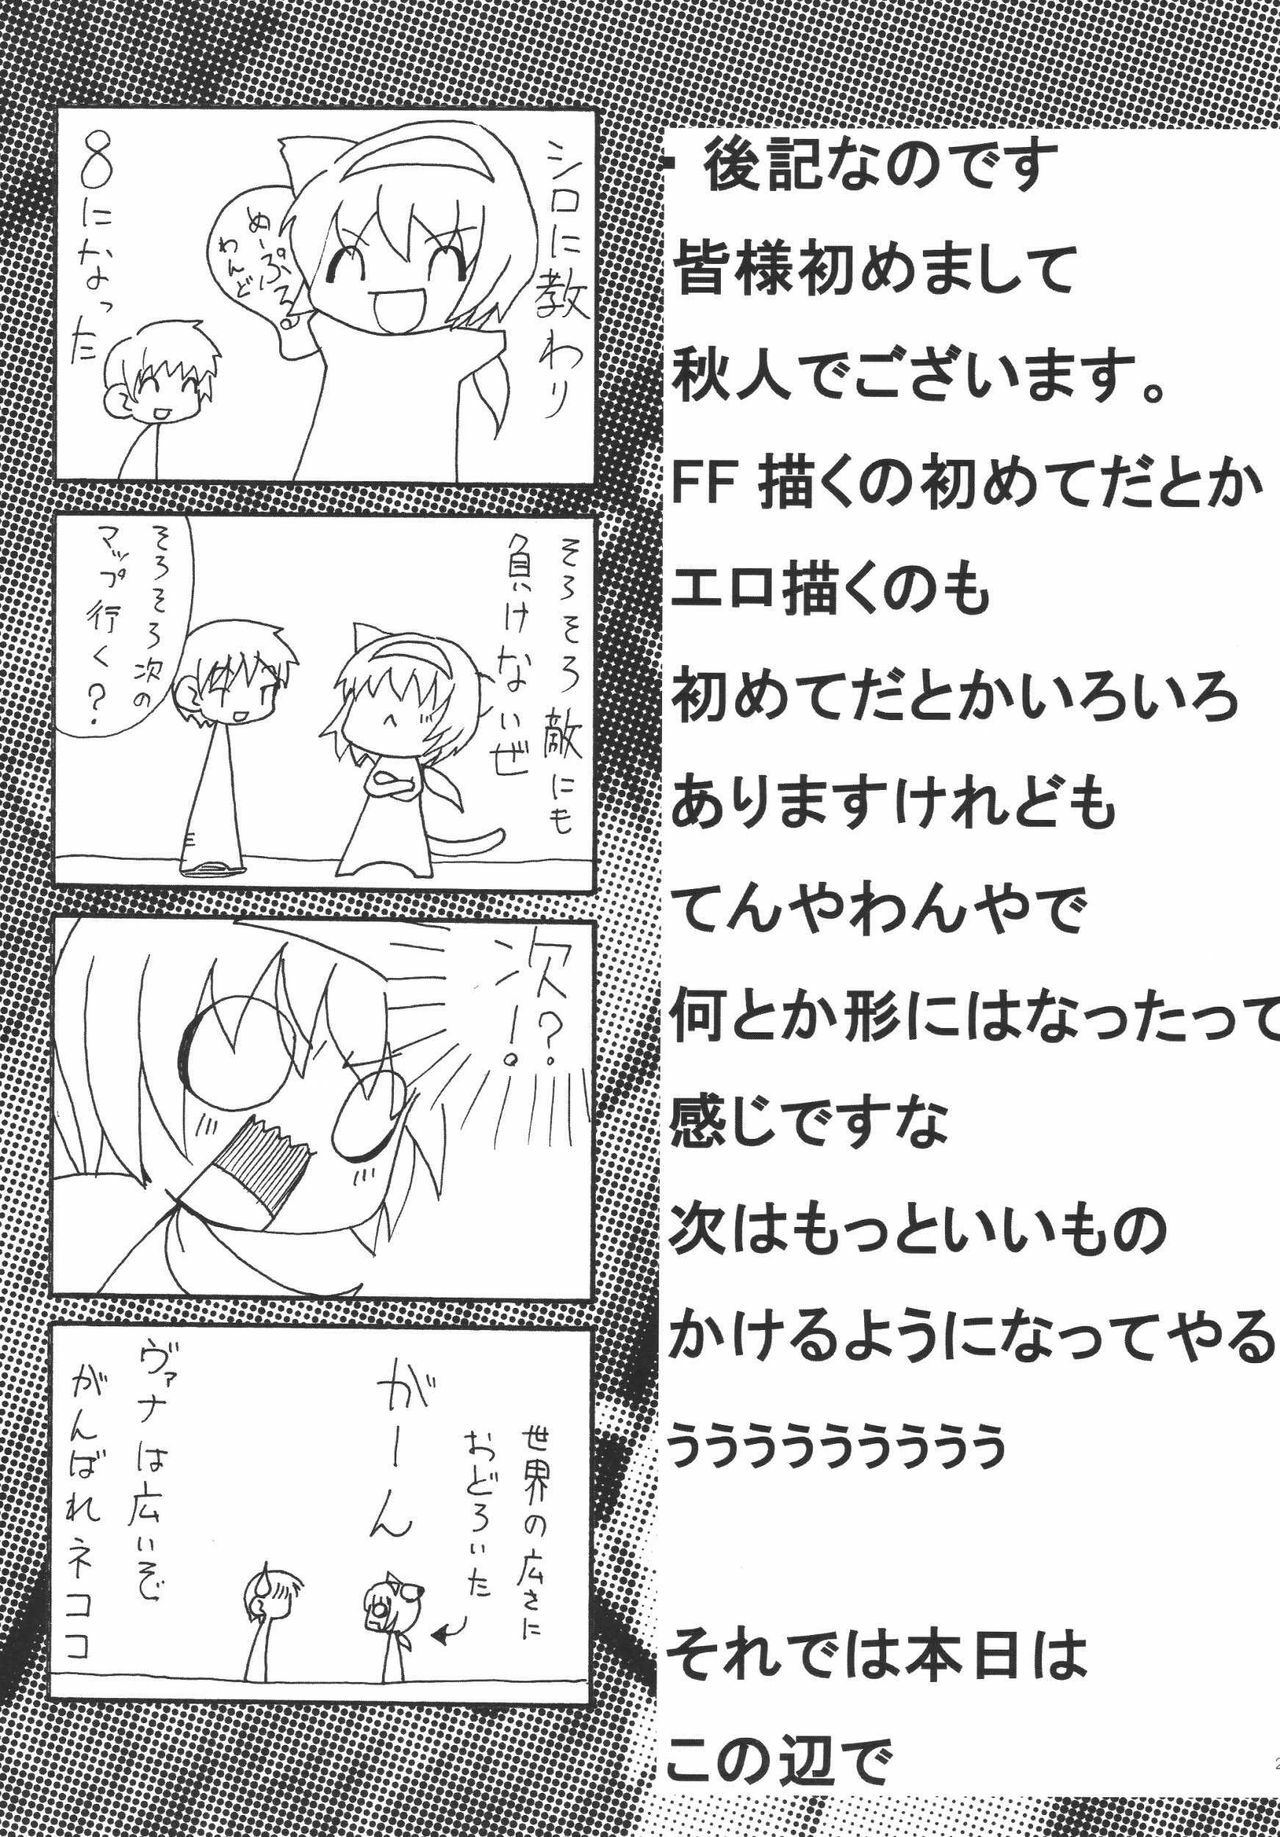 ・後記なのです
皆様初めまして
秋人でございます。
FF 描くの初めてだとか
エロ描くのも
初めてだとかいろいろ
ありますけれども
てんやわんやで
何とか形にはなったって
感じですな
次はもっといいもの
かけるようになってやる
ぅぅぅぅぅぅぅぅぅ
それでは本日は
この辺で
シロに教わり
めーぷる。
わんど
8になった
そろそろ敵にも
負けないぜ
そろそろ次の
マップ行く？
次？
ー！
世界の広さに
おどろいた
がーん
ヴァナは広いぞ
がんばれネココ
2